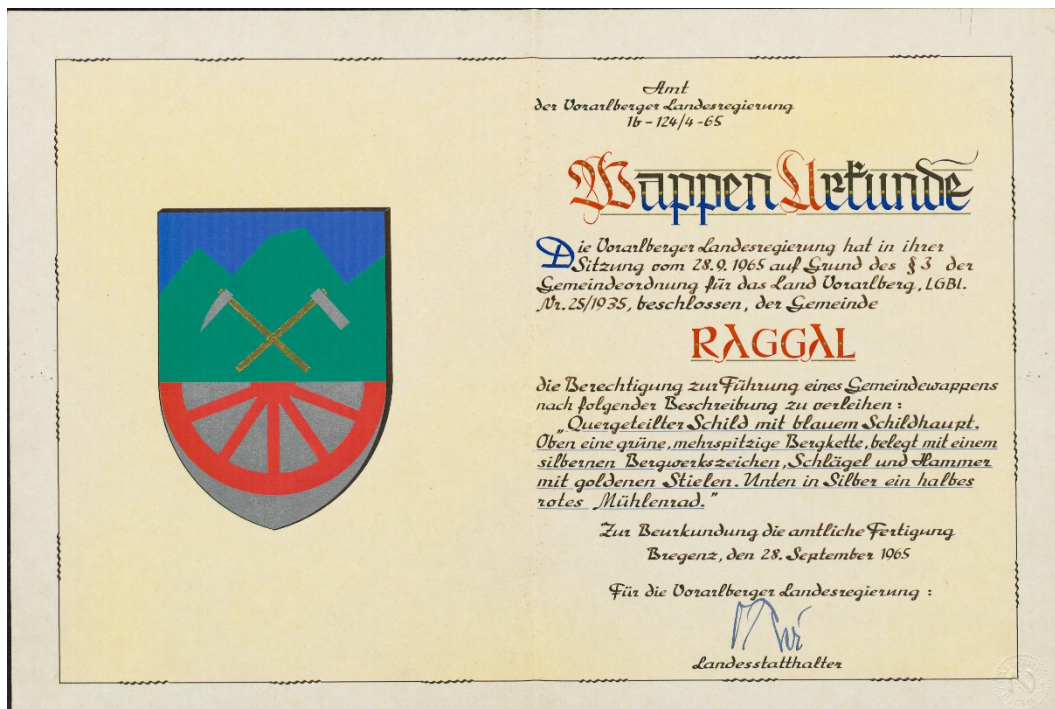 Amt
der Vorarlberger Landesregierung
Ib - 124/4 - 65
Wappen Urkunde
Die Vorarlberger Landesregierung hat in ihrer
Sitzung vom 28.9.1965 auf Grund des § 3 der
Gemeindeordnung für das Land Vorarlberg, LGBl.
Nr. 25/1935, beschlossen, der Gemeinde
RAGGAL
die Berechtigung zur Führung eines Gemeindewappens
nach folgender Beschreibung zu verleihen:
„Quergeteilter Schild mit blauem Schildhaupt.
Oben eine grüne, mehrspitzige Bergkette, belegt mit einem
silbernen Bergwerkszeichen, Schlägel und Hammer
mit goldenen Stielen. Unten in Silber ein halbes
rotes Mühlenrad."
Zur Beurkundung die amtliche Fertigung
Bregenz, den 28. September 1965
Für die Vorarlberger Landesregierung:
Landesstatthalter